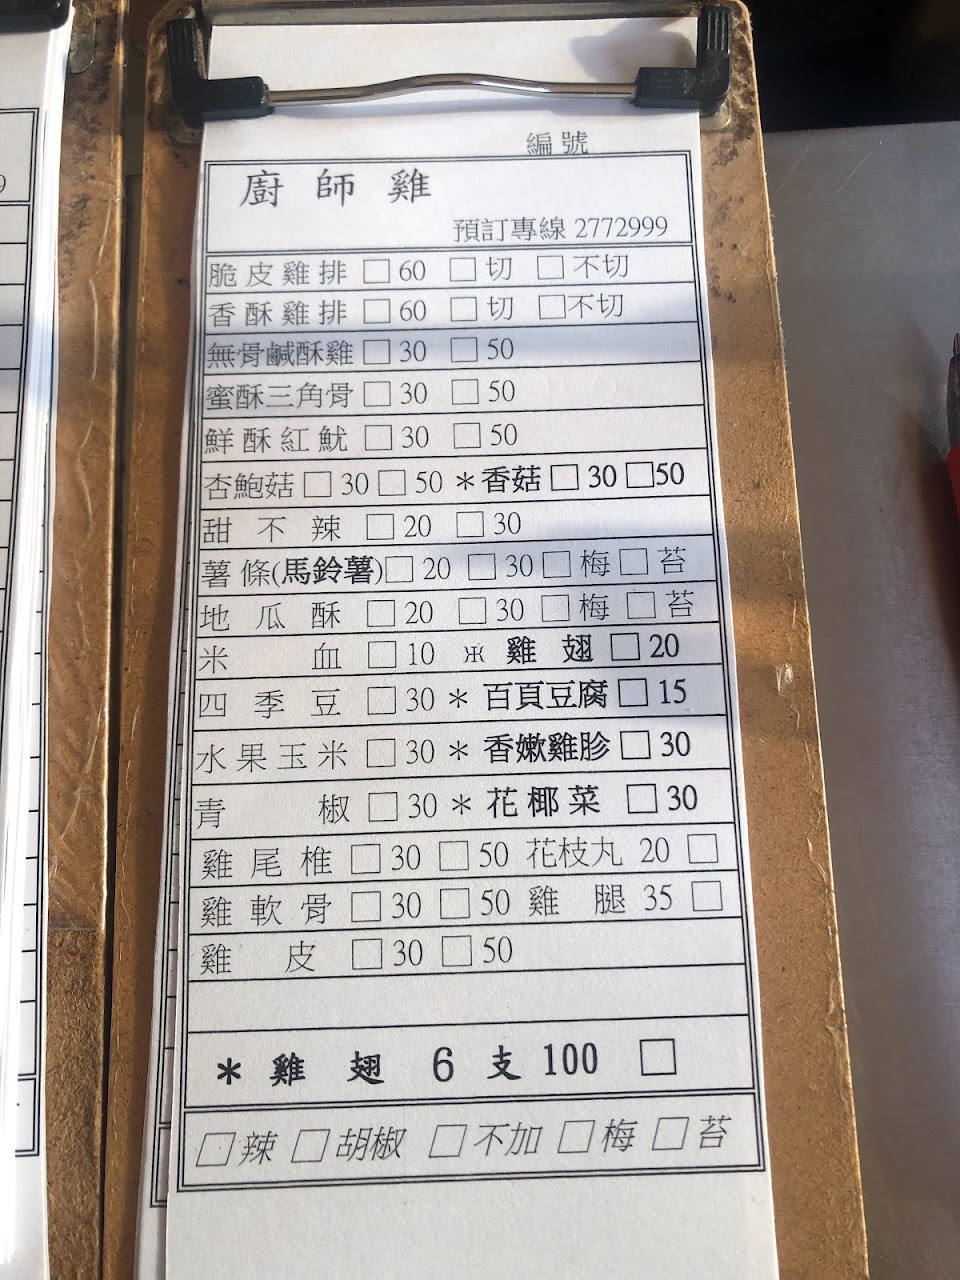 編號
廚師雞
預訂專線 2772999
脆皮雞排 □ 60 □ 切 □ 不切
香酥雞排 □ 60 □ 切 □不切
無骨鹹酥雞 □ 30 □ 50
蜜酥三角骨 □ 30 □ 50
鮮酥紅魷 □ 30 □ 50
杏鮑菇 □ 30 □ 50 ＊香菇 □ 30 □50
甜不辣 □ 20 □ 30
薯條(馬鈴薯)□ 20 □ 30 □ 梅 □ 苔
地瓜酥 □ 20 □ 30 □ 梅 □ 苔
米血 □ 10 ＊ 雞翅 □ 20
四季豆 □ 30 ＊ 百頁豆腐 □ 15
水果玉米 □ 30 ＊ 香嫩雞胗 □ 30
青椒 □ 30 ＊ 花椰菜 □ 30
雞尾椎 □ 30 □ 50 花枝丸 20 □
雞軟骨 □ 30 □ 50 雞腿 35 □
雞皮 □ 30 □ 50
＊ 雞翅 6 支 100 □
□ 辣 □ 胡椒 □ 不加 □ 梅 □ 苔